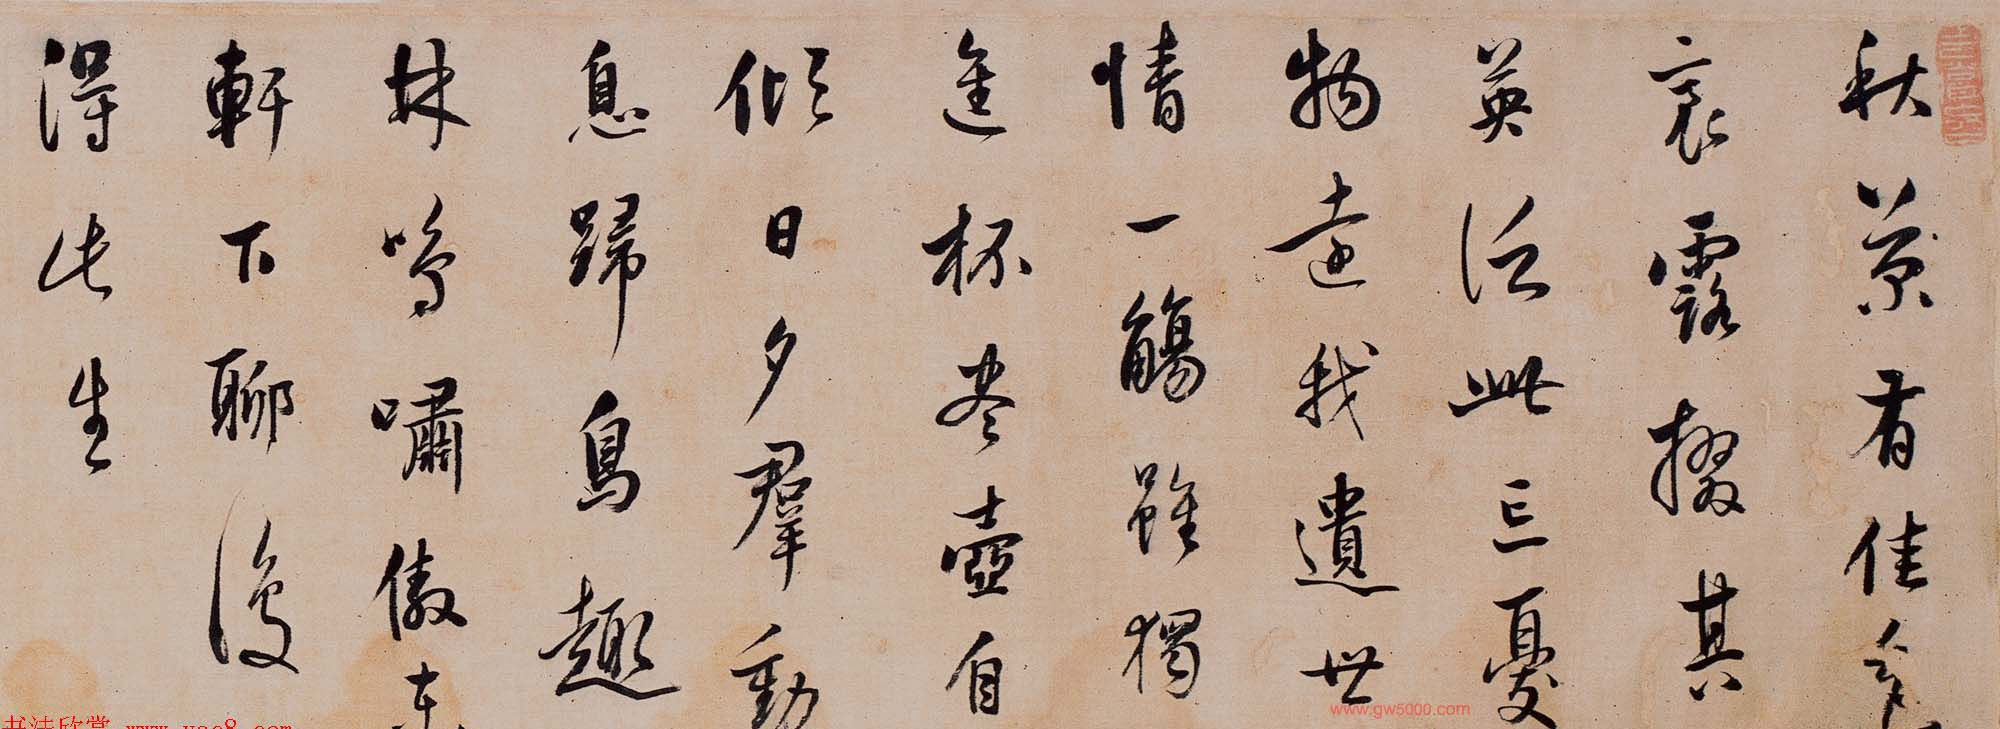 秋菊有佳色
裛露掇其
英泛此忘憂
物遠我遺世
情一觴雖獨
進杯尽壺自
傾日夕羣動
息歸鳥趣
林鳴嘯傲東
軒下聊復
得此生
www.gw5000.com
书法欣赏